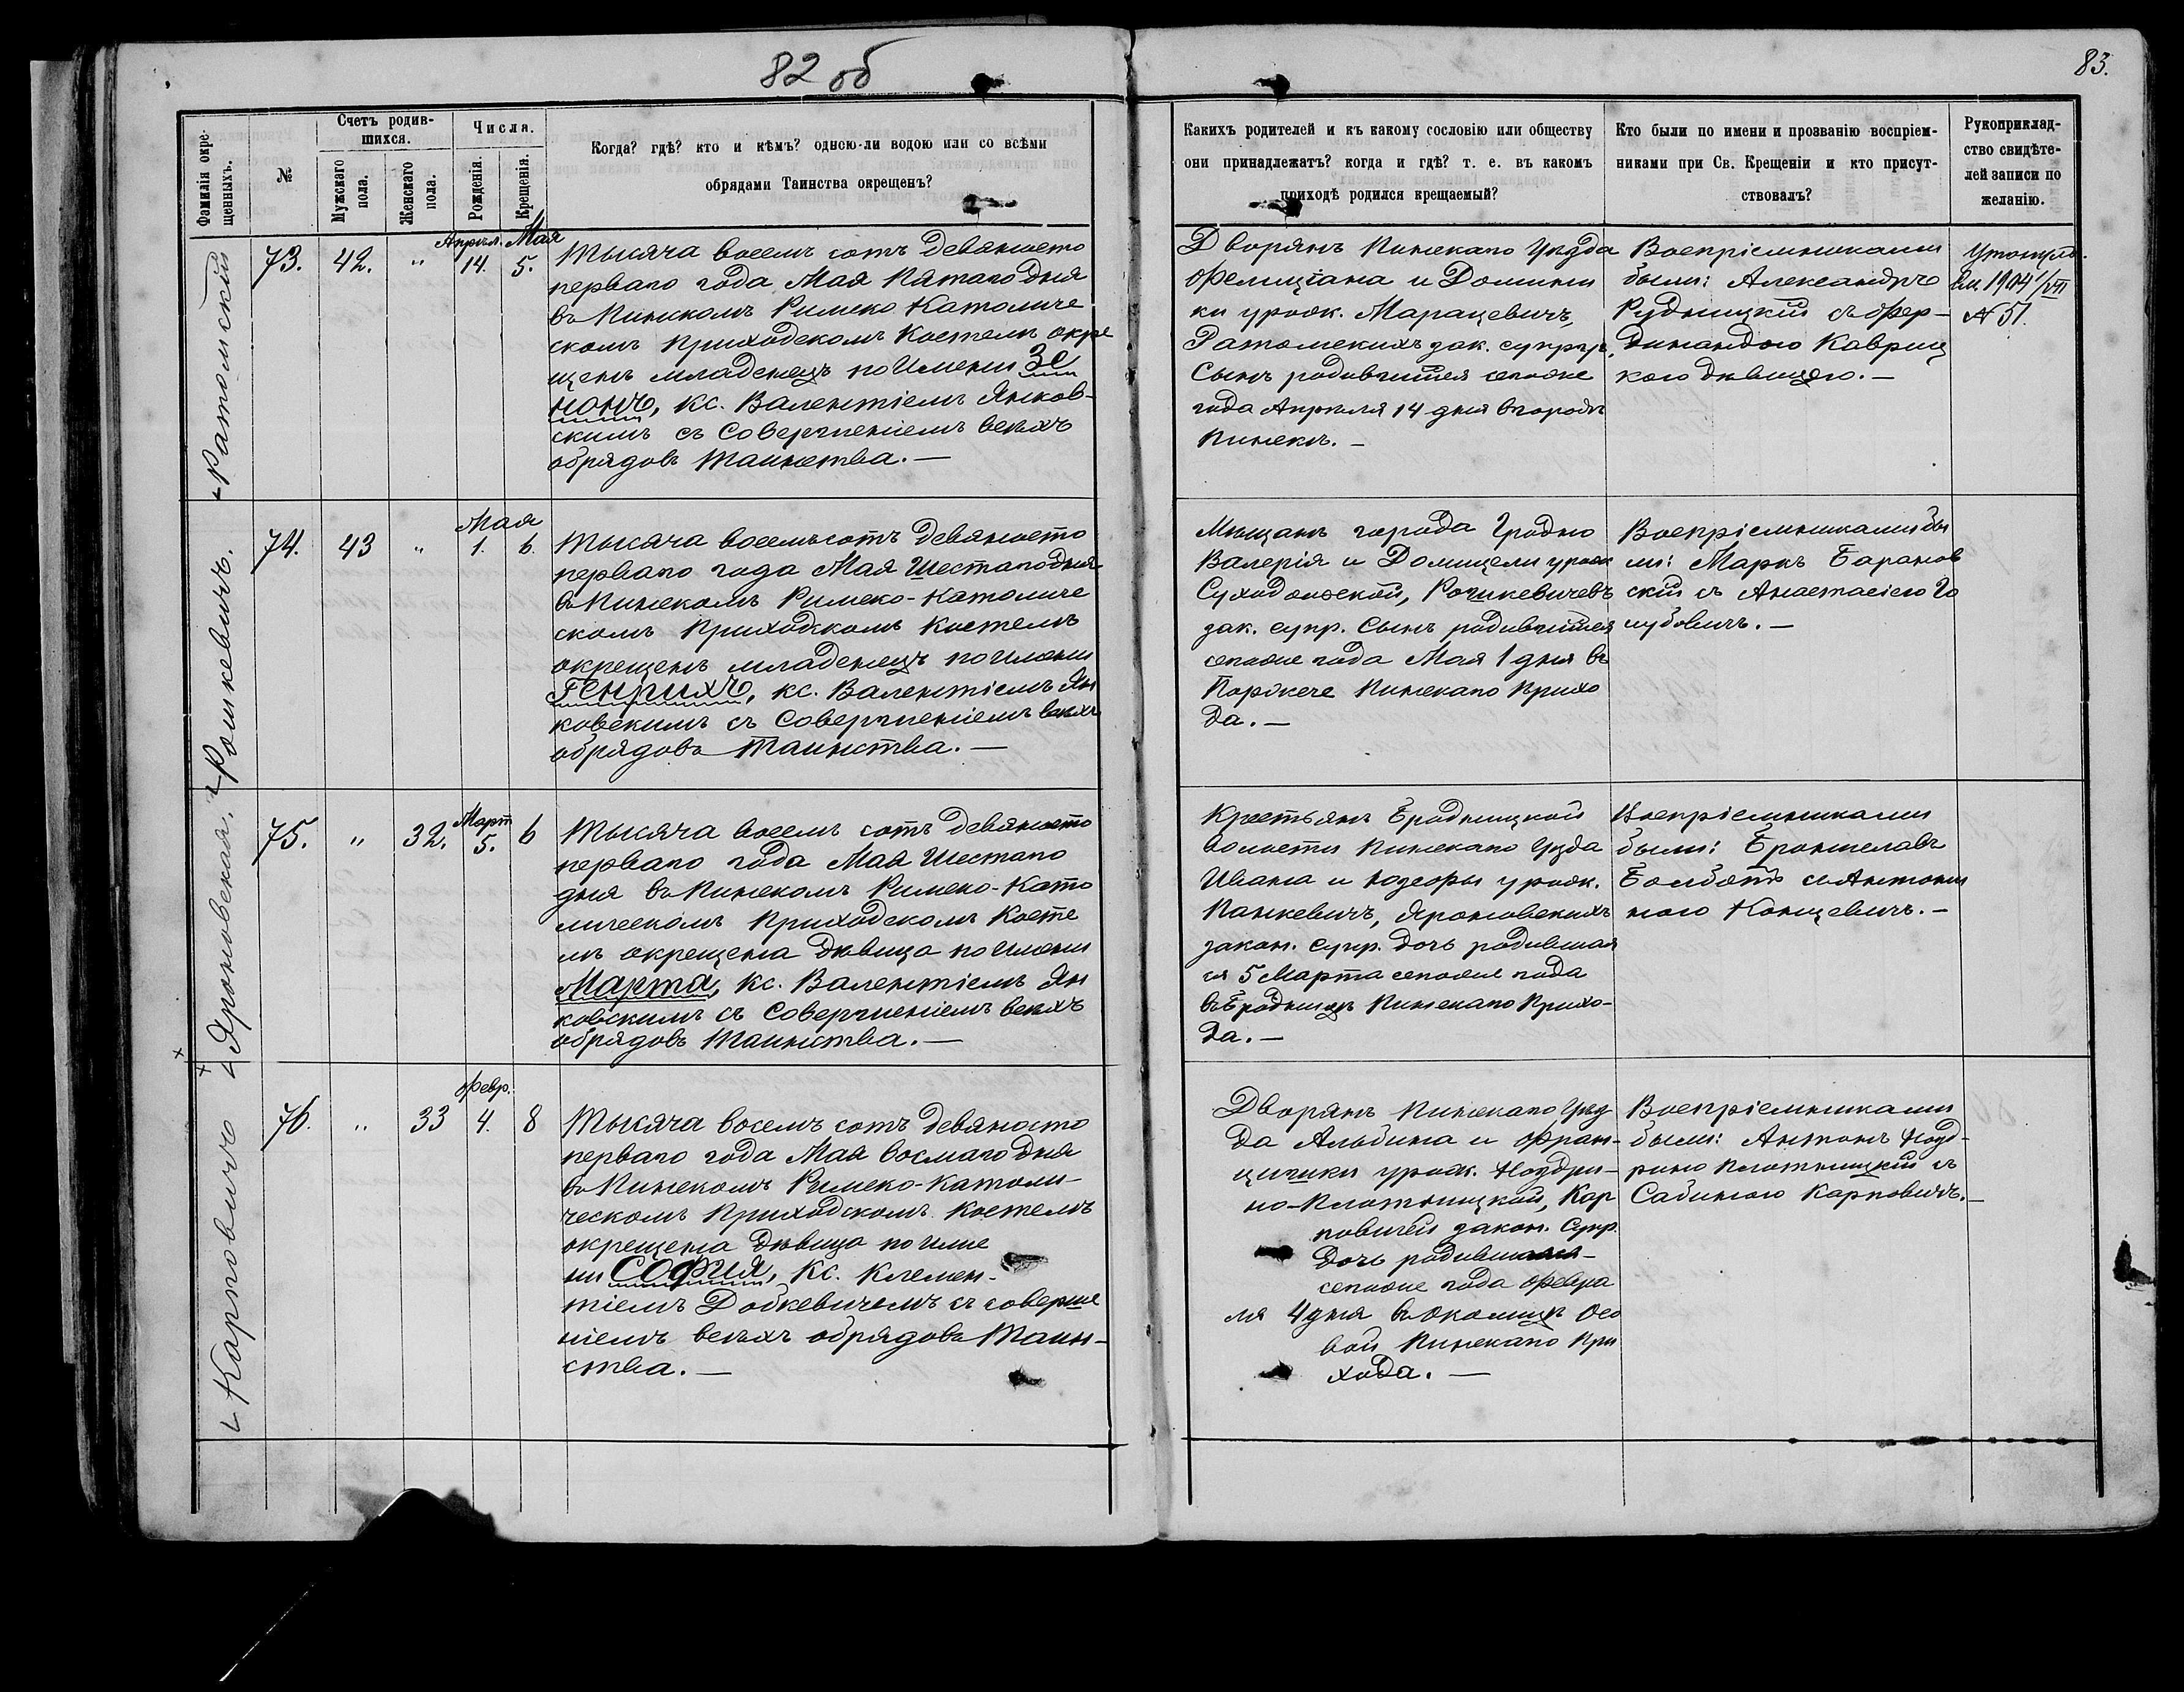 82 об
83.
Фамилія окре-
щенныхъ.
№
Счетъ родив-
шихся.
Мужскаго
пола.
Женскаго
пола.
Числа.
Рожденія.
Крещенія.
Когда? гдѣ? кто и кѣмъ? одною-ли водою или со всѣми
обрядами Таинства окрещенъ?
Какихъ родителей и къ какому сословію или обществу
они принадлежатъ? когда и гдѣ? т. е. въ какомъ
приходѣ родился крещаемый?
Кто были по имени и прозванію воспріем-
никами при Св. Крещеніи и кто присут-
ствовалъ?
Рукоприклад-
ство свидѣте-
лей записи по
желанію.
Ратомскій
73.
42.
"
Апрѣл.
14.
Мая
5.
Тысяча восемь сотъ девяносто
перваго года Мая Пятаго дня
въ Пинскомъ Римско Католиче
скомъ Приходскомъ Костелѣ окре
щенъ младенецъ по имени Зе
нонъ, кс. Валентіемъ Янков-
скимъ съ совершеніемъ всѣхъ
обрядовъ Таинства.—
Дворянъ Пинскаго Уѣзда
Фелиціана и Домини
ки урожд. Марацевичъ,
Ратомскихъ зак. супруг.
Сынъ родившійся сегоже
года Апрѣля 14 дня въ городѣ
Пинскѣ.—
Воспріемниками
были: Александръ
Рудницкій съ Фер-
динандою Каврыц
кого дѣвицею.—
1904/VII
№ 51.
Рошкевичъ.
74.
43
"
Мая
1.
6.
Тысяча восемьсотъ девяносто
перваго года Мая Шестаго дня
въ Пинскомъ Римско-Католиче
скомъ Приходскомъ Костелѣ
окрещенъ младенецъ по имени
Генрихъ, кс. Валентіемъ Ян
ковскимъ съ совершеніемъ всѣхъ
обрядовъ Таинства.—
Мѣщанъ города Гродно
Валерія и Домицели урожд
Суходольской, Рошкевичевъ
зак. супр. Сынъ родившійся
сегоже года Мая 1 дня въ
Парохече Пинскаго Прихо
да.—
Воспріемниками бы
ли: Маркъ Баранов
скій съ Анастасіею Го
лубовичъ.—
Яроновская.
75.
"
32.
Март
5.
6
Тысяча восемь сотъ девяносто
перваго года Мая Шестаго
дня въ Пинскомъ Римско-Като
лическомъ Приходскомъ Косте
лѣ окрещена дѣвица по имени
Марта, кс. Валентіемъ Ян
ковскимъ съ совершеніемъ всѣхъ
обрядовъ Таинства.—
Крестьянъ Бродницкой
волости Пинскаго Уѣзда
Ивана и Юзефы урожд.
Панкевичъ, Яроновскихъ
закон. супр. дочь родившая
ся 5 Марта сегоже года
въ Бродницѣ Пинскаго Прихо-
да.—
Воспріемниками
были: Брониславъ
Болботъ съ Антони
ною Концевичъ.—
Карповичъ
76.
"
33
Февр.
4.
8
Тысяча восемь сотъ девяносто
перваго года Мая восмаго дня
въ Пинскомъ Римско-Католи-
ческомъ Приходскомъ Костелѣ
окрещена дѣвица по име
ни София, кс. Клемен-
тіемъ Добкевичемъ съ соверше
ніемъ всѣхъ обрядовъ Таин-
ства.—
Дворянъ Пинскаго Уѣз
да Альбина и Фран-
цишки урожд. Ноздри-
но-Плотницкой, Кар
повичей закон. супр.
Дочь родившаяся
сегоже года Февра
ля 4 дня въ околицѣ Осо
вой Пинскаго При
хода.—
Воспріемниками
были: Антонъ Нозд-
рино Плотницкій съ
Сабиною Карповичъ.—